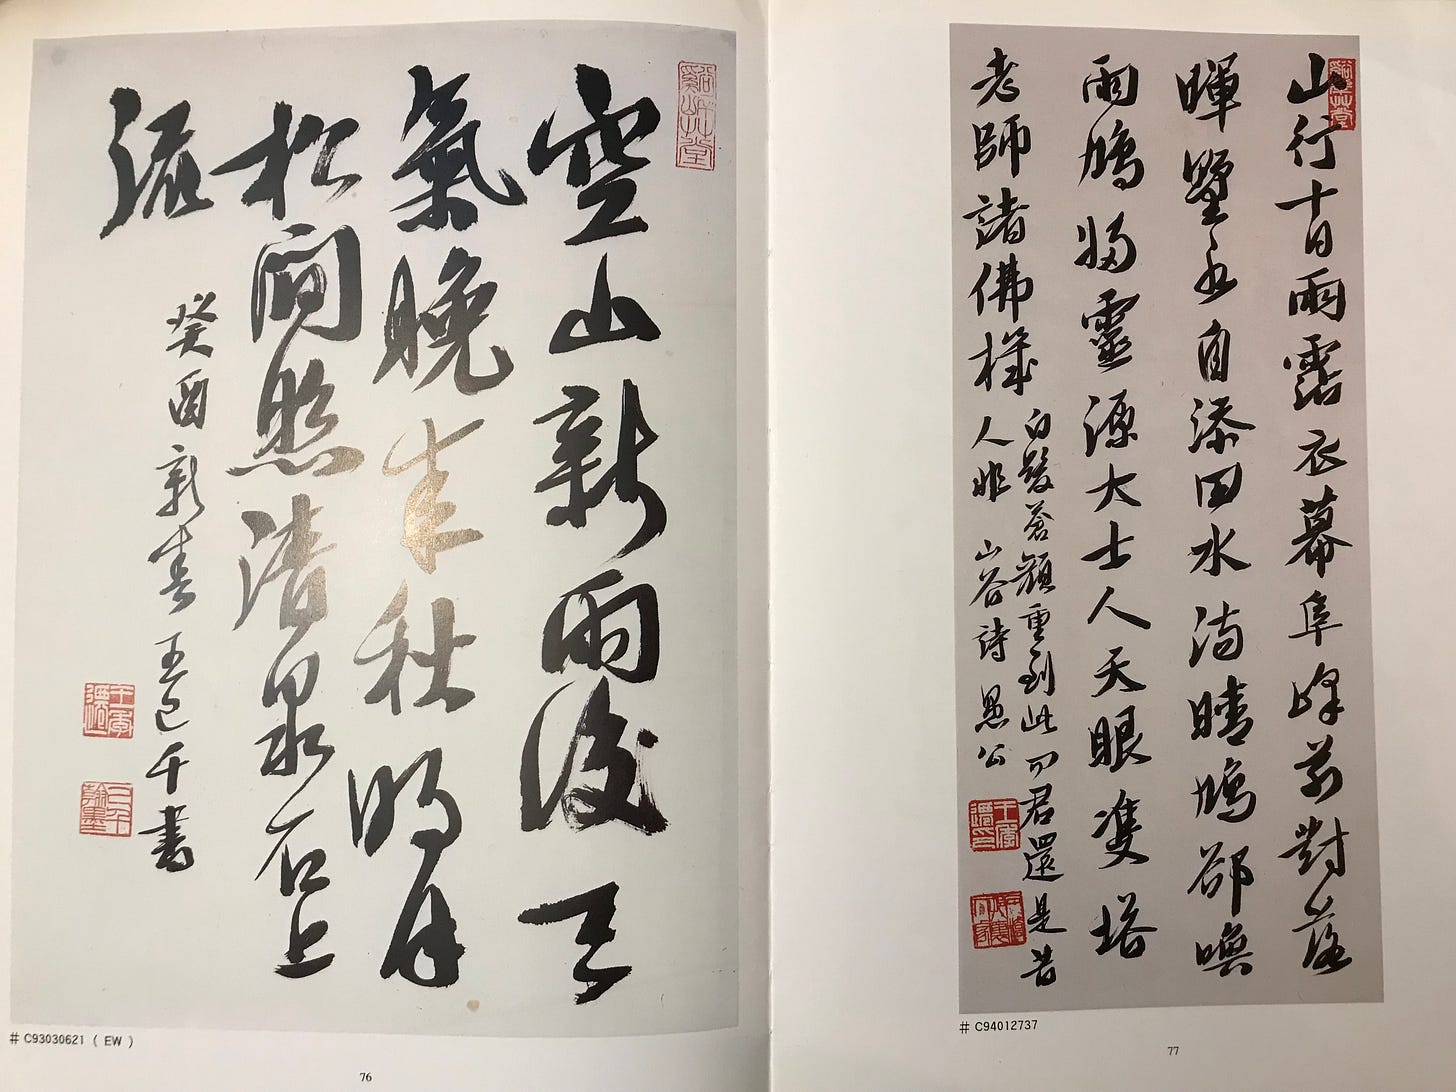 谿岸堂
空山新雨後天
氣晚来秋明月
松間照清泉石上
流
癸酉新春王己千書
# C93030621 ( EW )
76
谿岸堂
山行十日雨霑衣幕阜峰前對落
暉墅水自添田水滿晴鳩卻喚
雨鳩歸靈源大士人天眼雙塔
老師諸佛機
白髮蒼顏重到此問君還是昔
人非 山谷詩 愚公
# C94012737
77